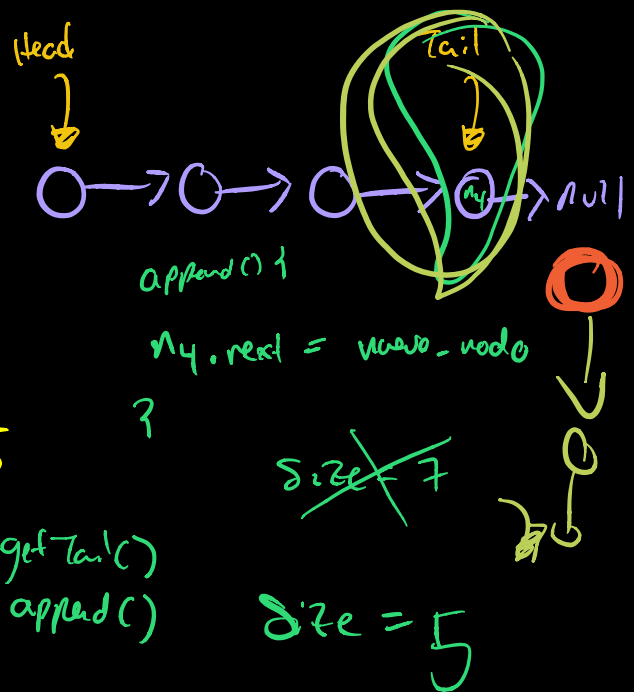 Head
Tail
n4
null
append() {
n4.next = nuevo_nodo
}
size = 7
getTail()
append()
size = 5